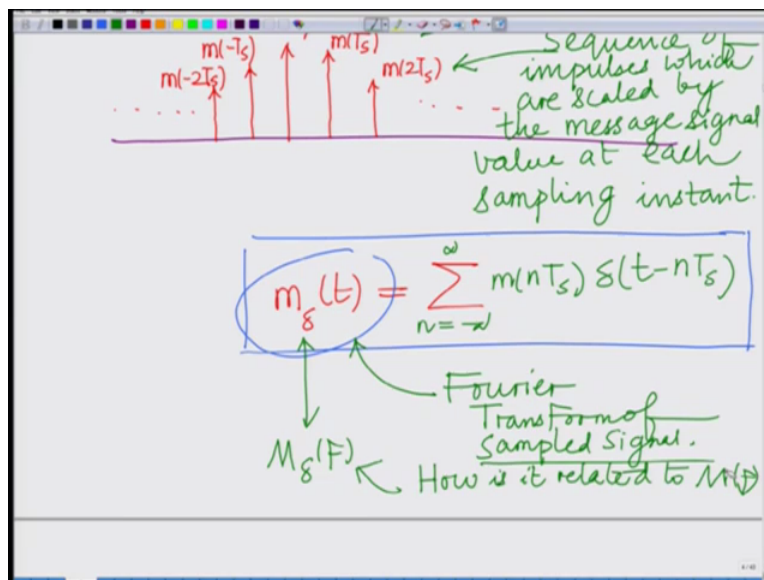 m(-Ts)
m(Ts)
m(-2Ts)
m(2Ts)
Sequence of
impulses which
are scaled by
the message signal
value at each
sampling instant.
m_δ(t) = ∑_{n=-∞}^{∞} m(nTs) δ(t-nTs)
Fourier
Transform of
Sampled Signal.
M_δ(F)
How is it related to M(F)